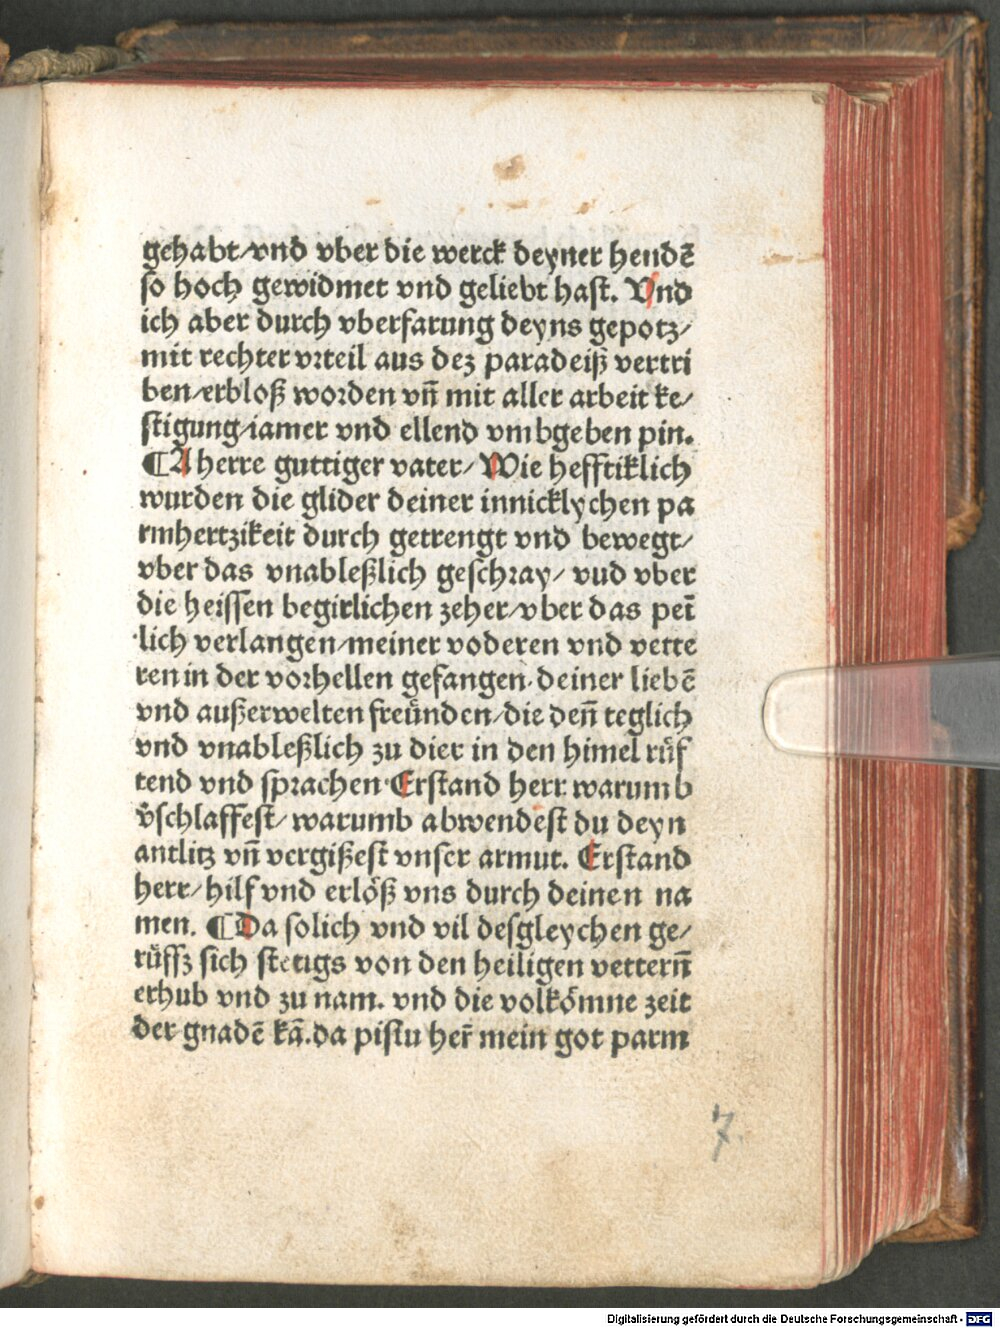 gehabt/vnd vber die werck deyner hendē
so hoch gewidmet vnd geliebt hast. Vnd
ich aber durch vberfarung deyns gepotz/
mit rechter vrteil aus dez paradeiß vertri
ben/erbloß worden vn̄ mit aller arbeit ke/
stigung/iamer vnd ellend vmbgeben pin.
¶A herre guttiger vater/Wie hefftiklich
wurden die glider deiner innicklychen pa
rmhertzikeit durch getrengt vnd bewegt/
vber das vnableßlich geschray/ vud vber
die heissen begirlichen zeher/vber das peī
lich verlangen/meiner voderen vnd vette
ren in der vorhellen gefangen. deiner liebē
vnd außerwelten freünden/die den̄ teglich
vnd vnableßlich zu dier in den himel rüf
tend vnd sprachen. Erstand herr warumb
v̈schlaffest/warumb abwendest du deyn
antlitz vn̄ vergißest vnser armut. Erstand
herr/hilf vnd erlöß vns durch deinen na
men. ¶Da solich vnd vil desgleychen ge/
rüffz sich stetigs von den heiligen vettern̄
erhub vnd zu nam. vnd die volkömne zeit
der gnadē kā.da pistu her̄ mein got parm
7.
Digitalisierung gefördert durch die Deutsche Forschungsgemeinschaft - DFG